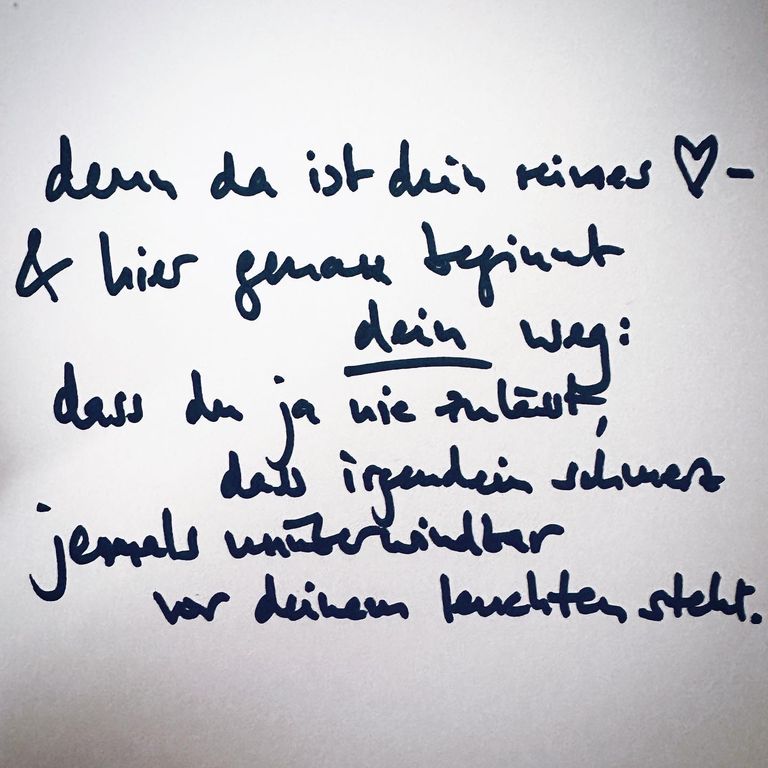 denn da ist dein reines ♡-
& hier genau beginnt
dein weg:
dass du ja nie zulässt,
dass irgendein schmerz
jemals unüberwindbar
vor deinem leuchten steht.